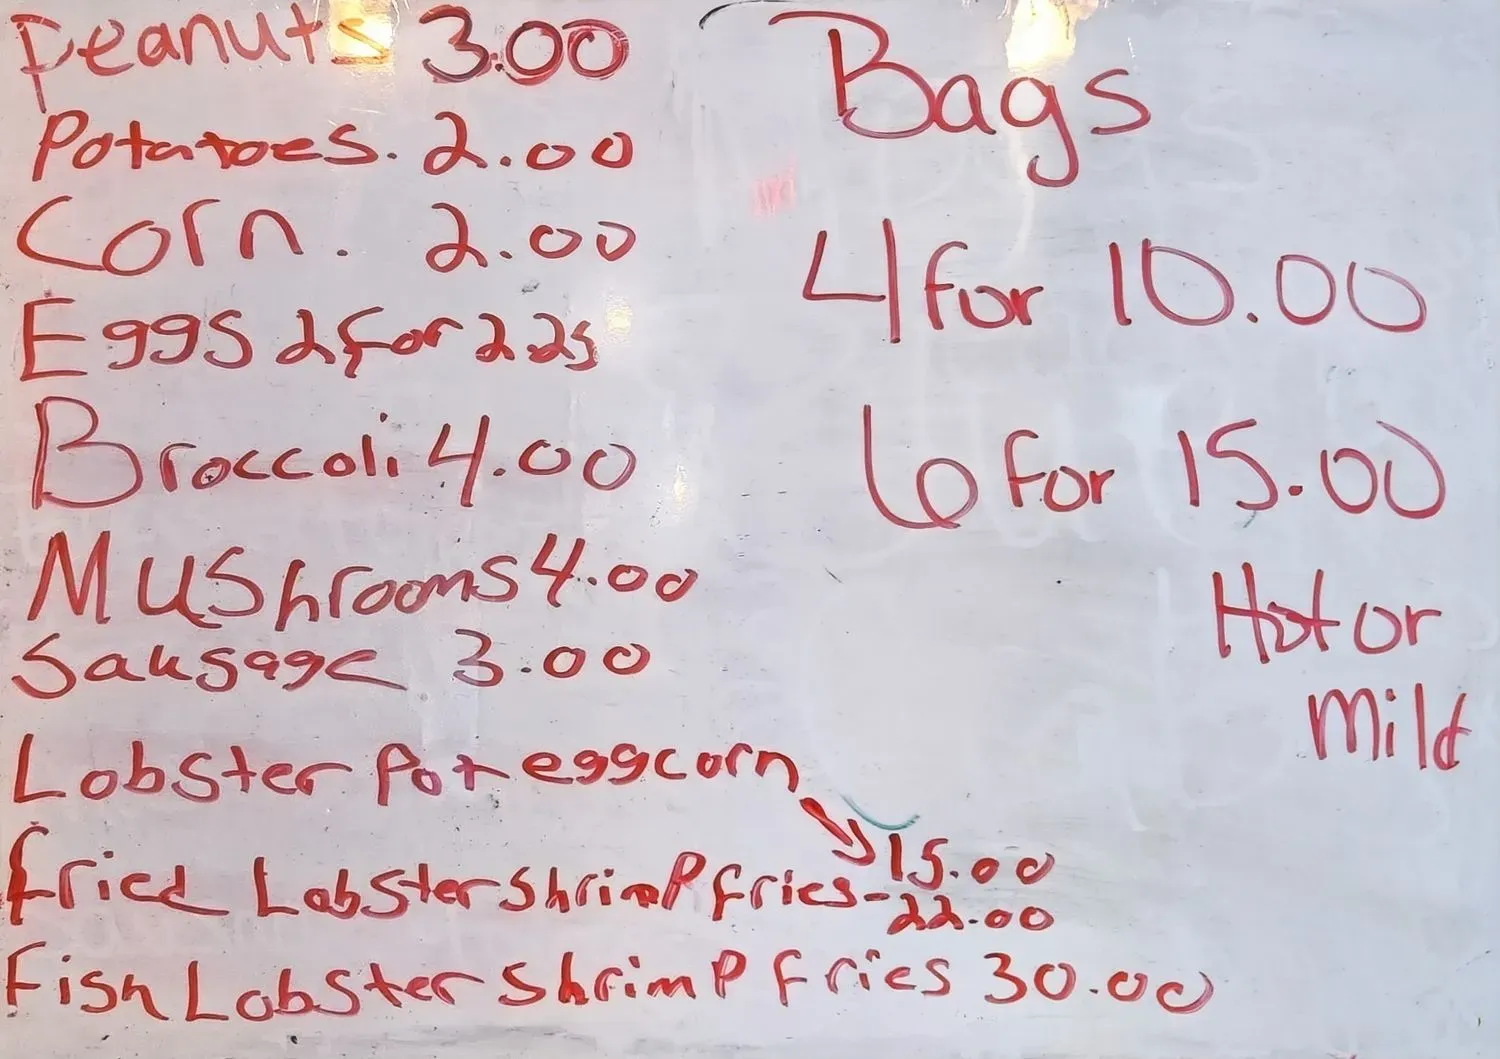 Peanuts 3.00
Potatoes. 2.00
Corn. 2.00
Eggs 2 for 2.25
Broccoli 4.00
Mushrooms 4.00
Sausage 3.00
Lobster Pot egg corn
15.00
Fried Lobster Shrimp fries - 22.00
Fish Lobster Shrimp fries 30.00
Bags
4 for 10.00
6 for 15.00
Hot or
Mild